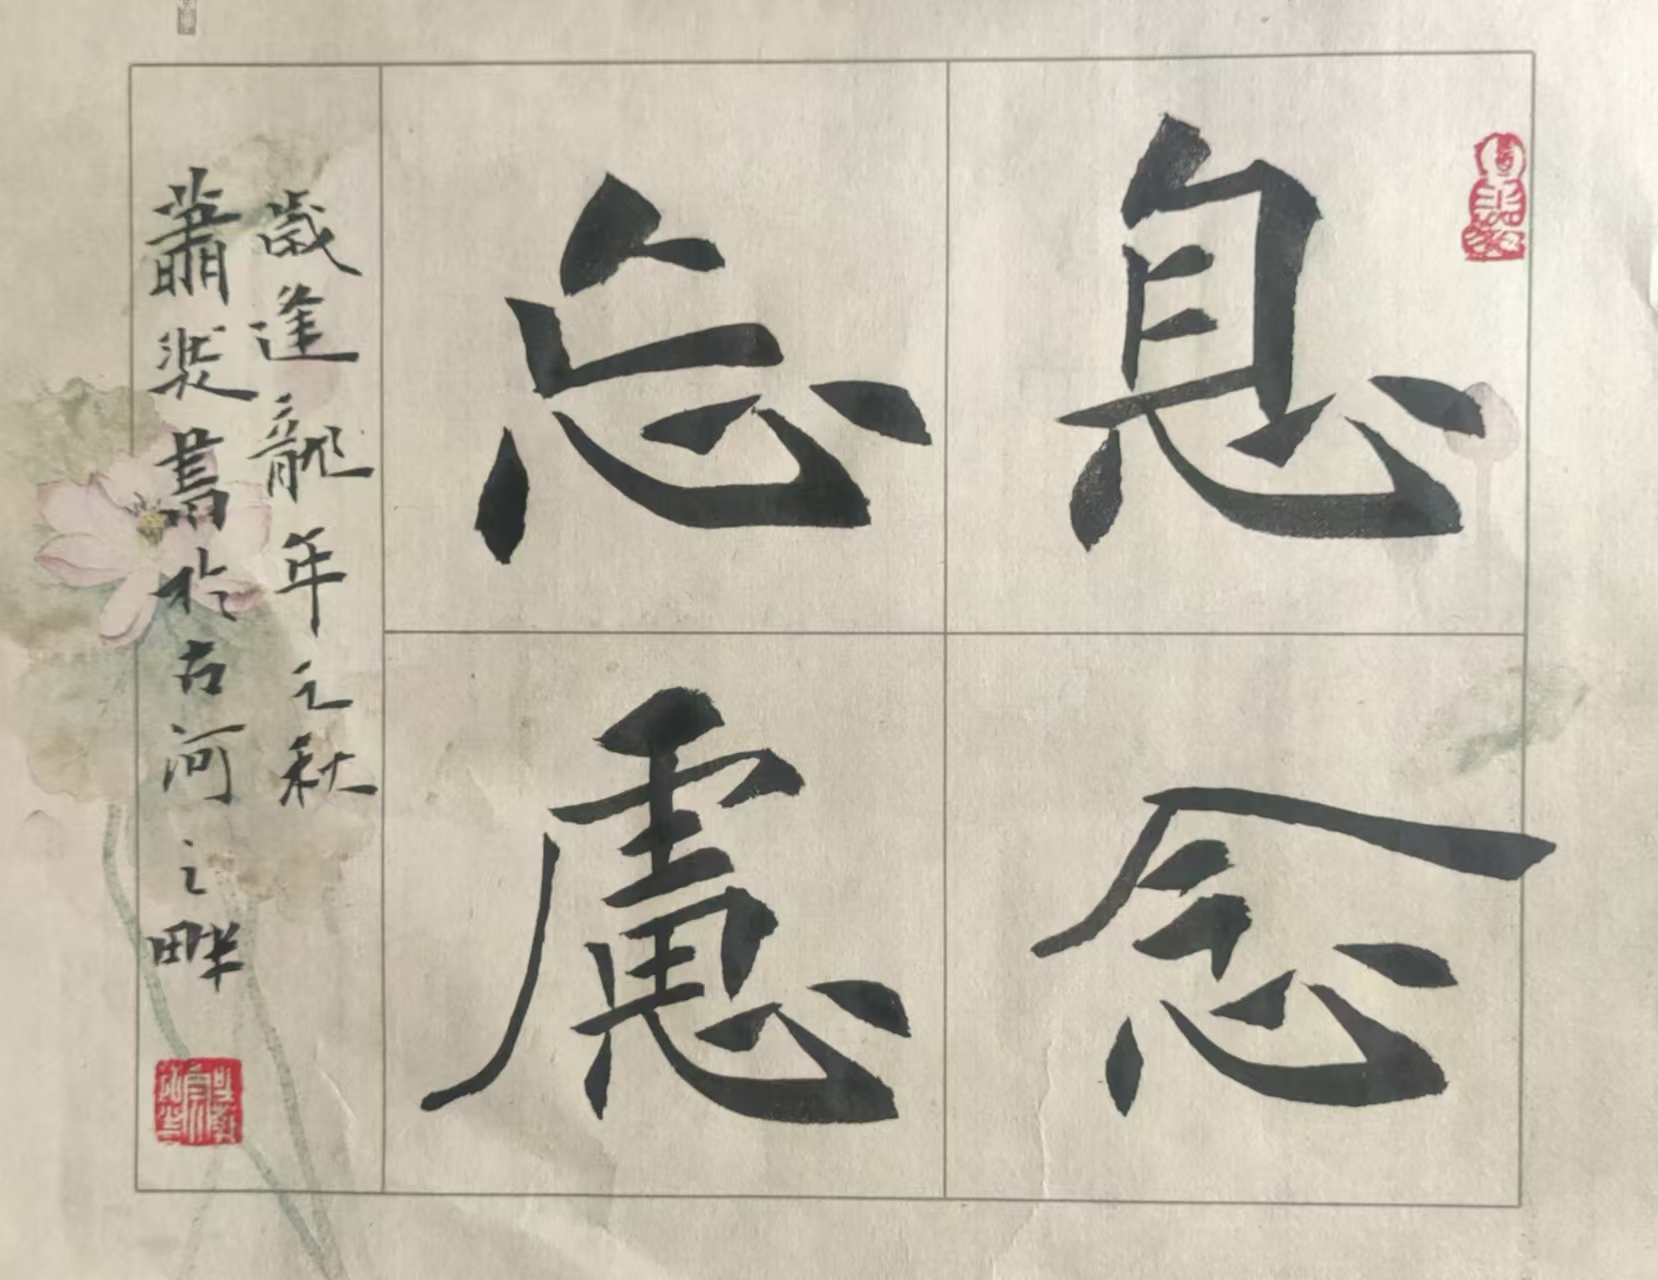 息念
忘慮
歲逢龍年之秋
蕭書於古河之畔